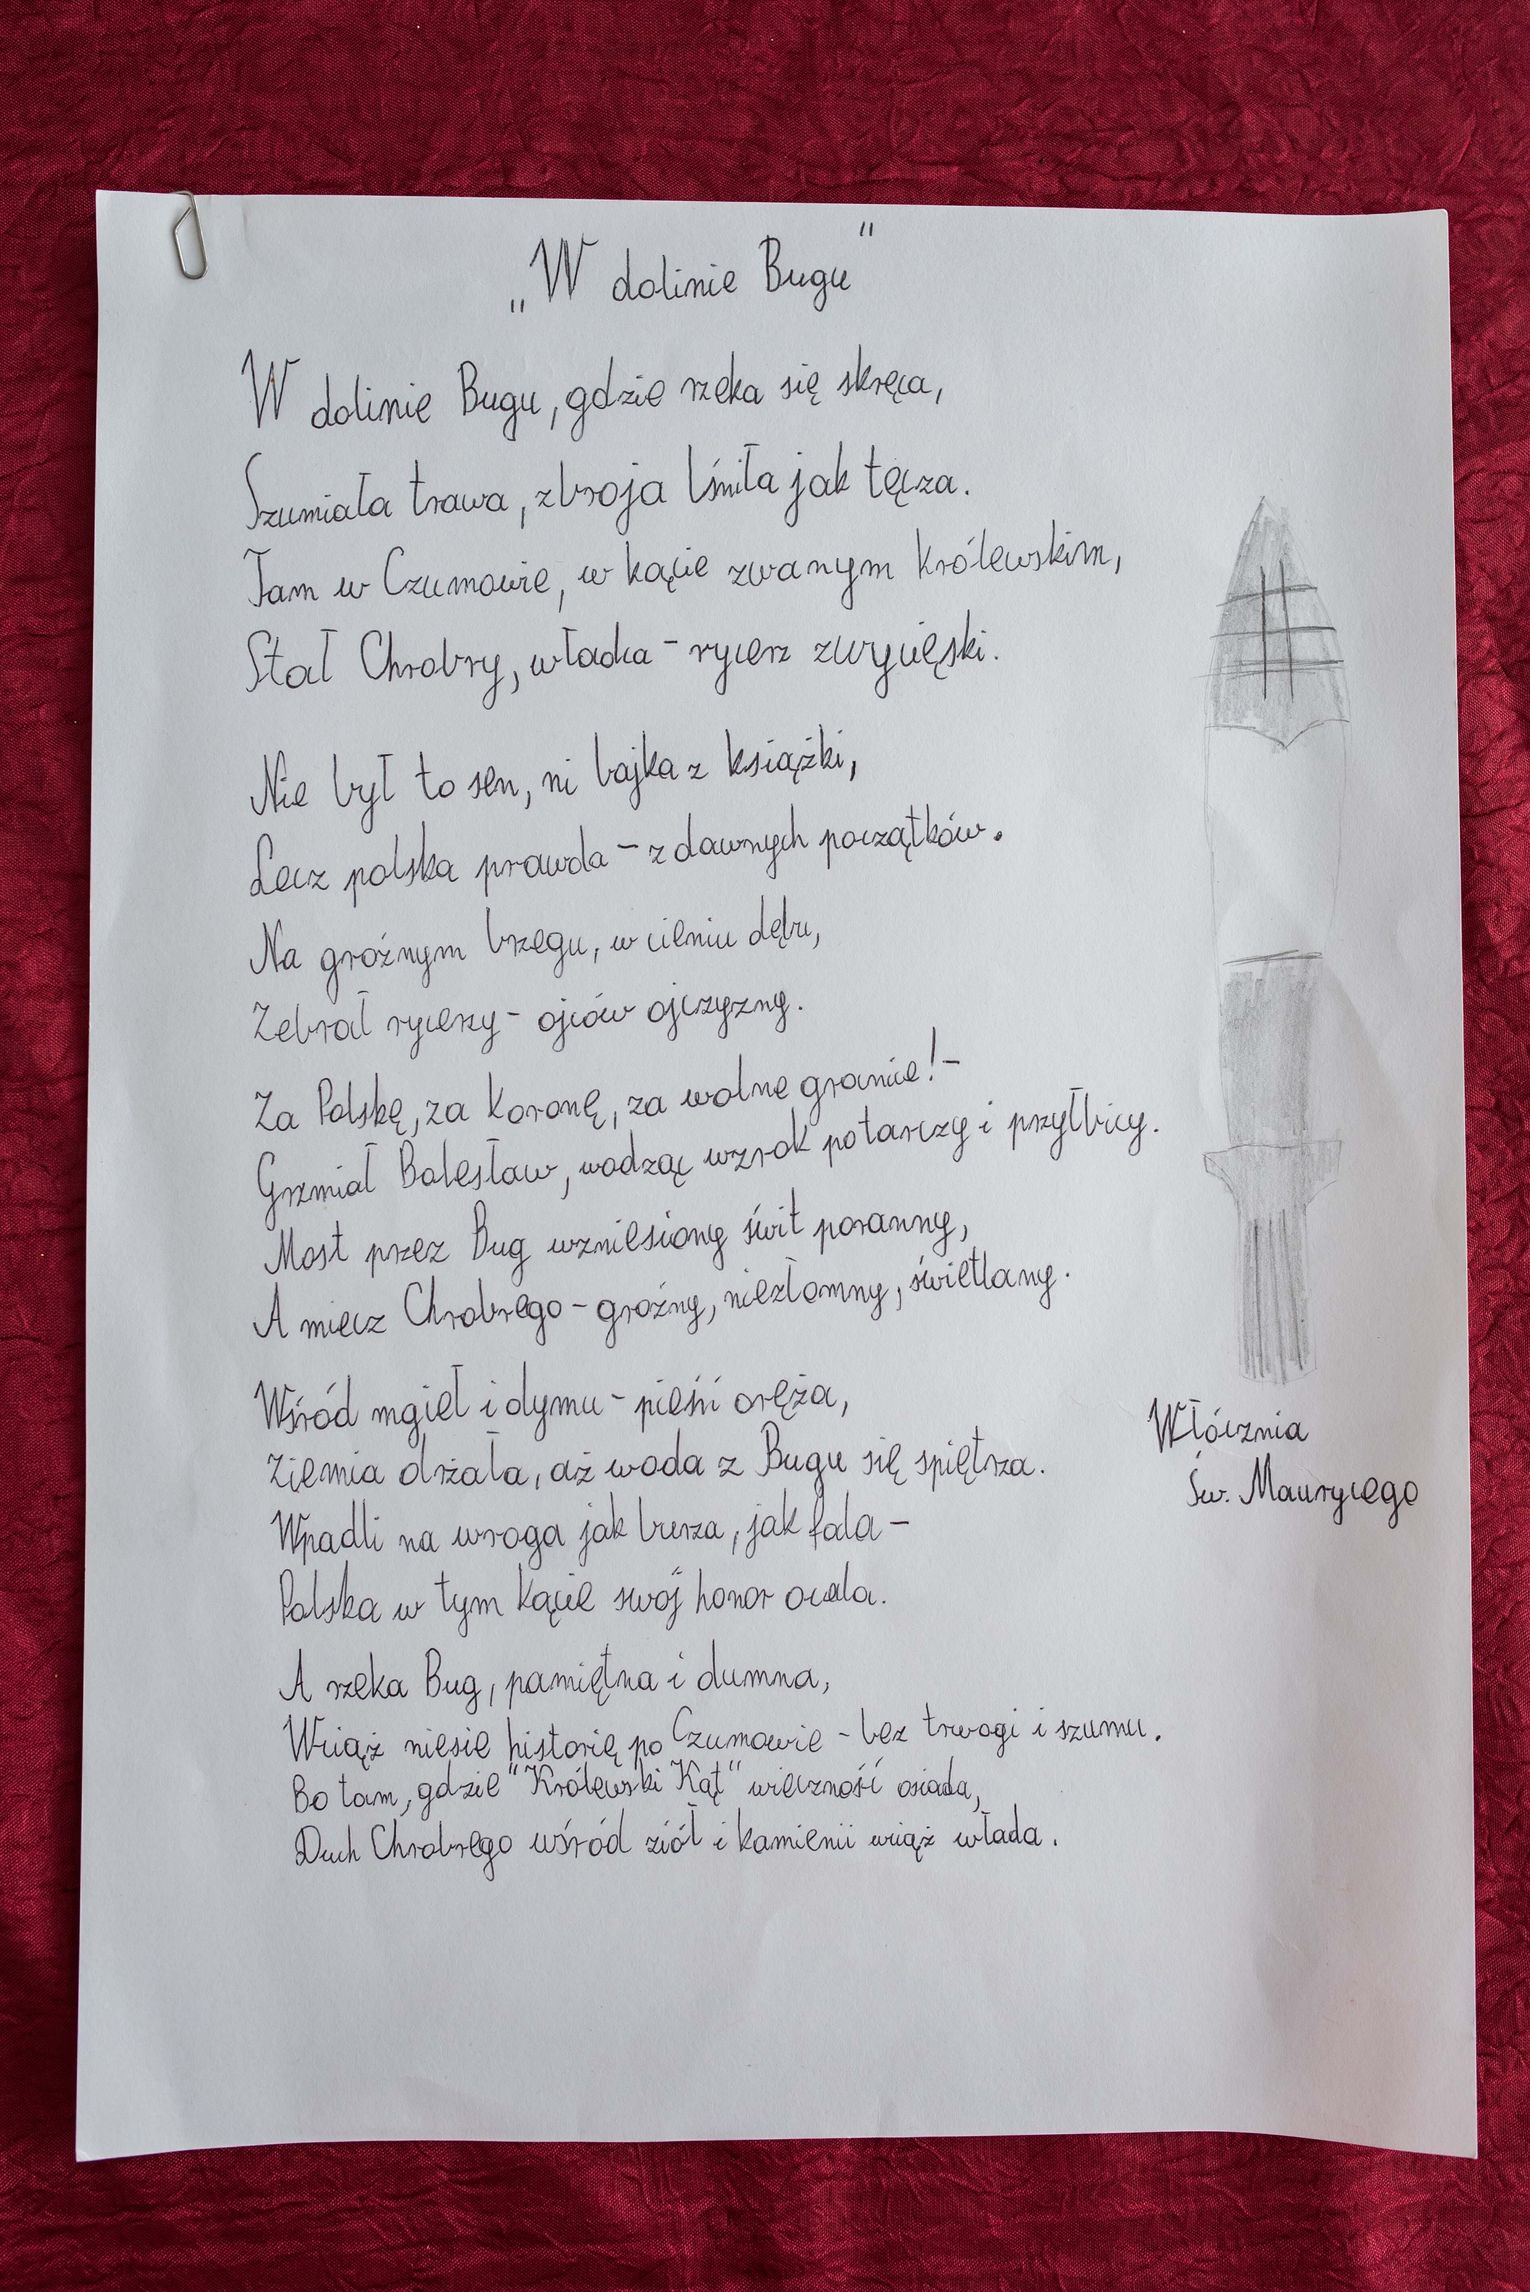 „W dolinie Bugu"
W dolinie Bugu, gdzie rzeka się skręca,
Szumiała trawa, zbroja lśniła jak tęcza.
Tam w Czumowie, w kącie zwanym królewskim,
Stał Chrobry, władca - rycerz zwycięski.
Nie był to sen, ni bajka z książki,
Lecz polska prawda - z dawnych początków.
Na groźnym brzegu, w cieniu dębu,
Zebrał rycerzy - ojców ojczyzny.
Za Polskę, za Koronę, za wolne granice! -
Grzmiał Bolesław, wodząc wzrok po tarczy i przyłbicy.
Most przez Bug wzniesiony świt poranny,
A miecz Chrobrego - groźny, niezłomny, świetlany.
Wśród mgieł i dymu - pieśni oręża,
Ziemia drżała, aż woda z Bugu się spiętrza.
Wpadli na wroga jak burza, jak fala -
Polska w tym kącie swój honor ocala.
A rzeka Bug, pamiętna i dumna,
Wciąż niesie historię po Czumowie - bez trwogi i szumu.
Bo tam, gdzie "Królewski Kąt" wieczność osiada,
Duch Chrobrego wśród ziół i kamienii wciąż włada.
Włócznia
Św. Maurycego